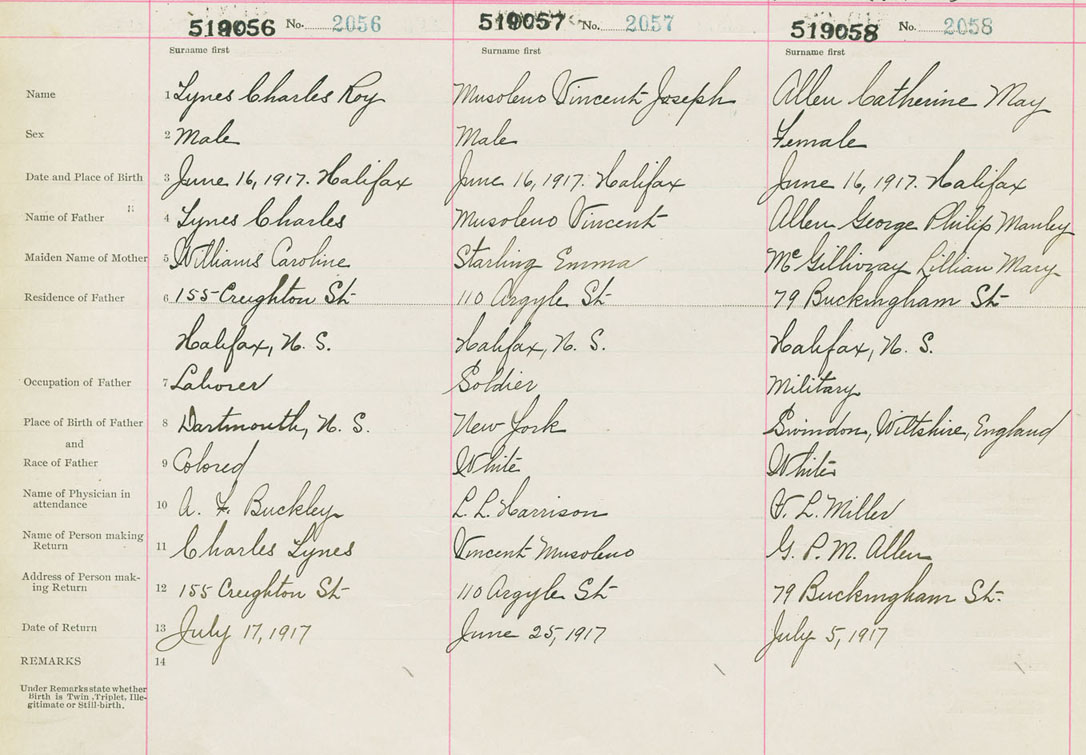 519056 No. 2056 519057 No. 2057 519058 No. 2058
Surname first Surname first Surname first
Name 1 Lynes Charles Roy Musoleno Vincent Joseph Allen Catherine May
Sex 2 Male Male Female
Date and Place of Birth 3 June 16, 1917. Halifax June 16, 1917. Halifax June 16, 1917. Halifax
Name of Father 4 Lynes Charles Musoleno Vincent Allen George Philip Manley
Maiden Name of Mother 5 Williams Caroline Starling Emma McGillivray Lillian Mary
Residence of Father 6 155 Creighton St 110 Argyle St 79 Buckingham St
Halifax, N. S. Halifax, N. S. Halifax, N. S.
Occupation of Father 7 Laborer Soldier Military
Place of Birth of Father 8 Dartmouth, N. S. New York Swindon, Wiltshire, England
and
Race of Father 9 Colored White White
Name of Physician in
attendance 10 A. F. Buckley L. L. Harrison V. L. Miller
Name of Person making
Return 11 Charles Lynes Vincent Musoleno G. P. M. Allen
Address of Person mak-
ing Return 12 155 Creighton St 110 Argyle St 79 Buckingham St.
Date of Return 13 July 17, 1917 June 25, 1917 July 5, 1917
REMARKS 14
Under Remarks state whether
Birth is Twin, Triplet, Ille-
gitimate or Still-birth.